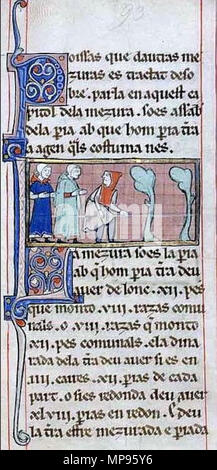 93
Poissas que dautras me
zuras es tractat deso
bre. parla en aquest ca
pitol dela mezura. so es assab
dela pia ab que hom pia tra
a agen qls costuma nes.
La mezura so es la pia
ab q hom pia tra deu
auer de lonc .xii. pes
que monto .viii. razas comu
nals. o .viii. razas q monto
.xii. pes comunals. e la dina
rada dela tra deu auer si es en
.iiii. caires .xii. pias de cada
part. o si es redonda deu auer
.xlviii. pias en redon. Deu
la tra esser mezurada e piada
alamy
alamy
Image ID: MP95Y6
www.alamy.com